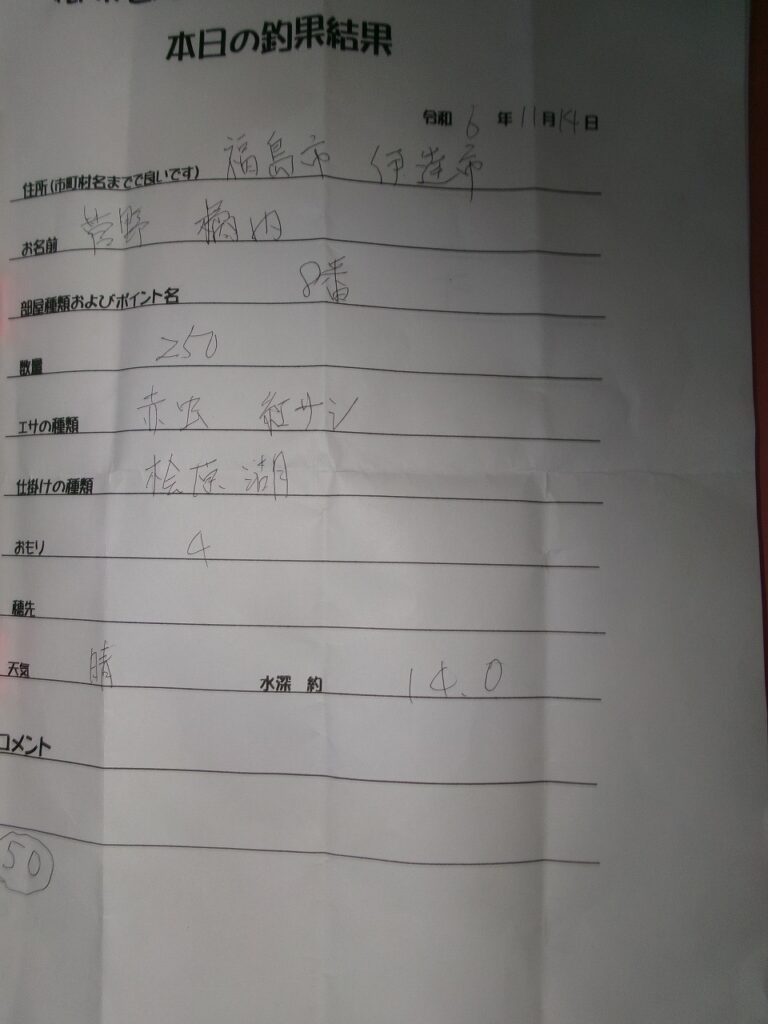 本日の釣果結果
令和 6 年 11月14日
住所(市町村名までで良いです) 福島市 伊達市
お名前 菅野 橘内
部屋種類およびポイント名 8番
数量 250
エサの種類 赤虫 紅サシ
仕掛けの種類 桧原湖
おもり 4
穂先
天気 晴 水深 約 14.0
コメント
50